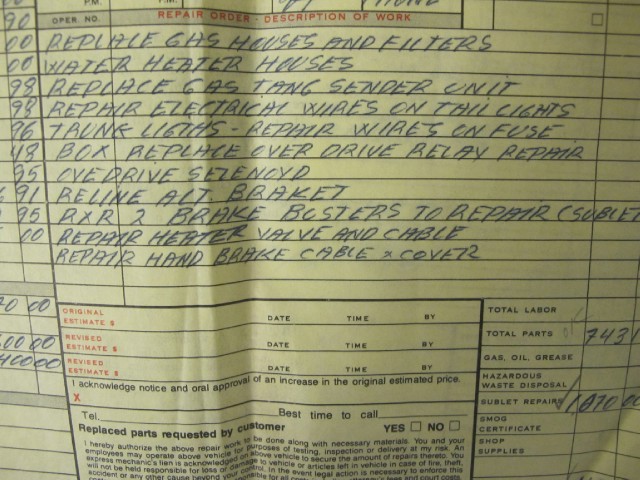 P.M. P.M. PHONE
90 OPER. NO. REPAIR ORDER - DESCRIPTION OF WORK
00 REPLACE GAS HOUSES AND FILTERS
00 WATER HEATER HOUSES
98 REPLACE GAS TANG SENDER UNIT
98 REPAIR ELECTRICAL WIRES ON TAIL LIGHTS
96 TRUNG LIGTHS - REPAIR WIRES ON FUSE
48 BOX REPLACE OVER DRIVE RELAY REPAIR
95 OVEDRIVE SELENOYD
91 RELINE ALT BRAKET
95 RXR 2 BRAKE BUSTERS TO REPAIR (SUBLET
00 REPAIR HEATER VALVE AND CABLE
REPAIR HAND BRAKE CABLE x COVER
00
ORIGINAL ESTIMATE $ DATE TIME BY
REVISED ESTIMATE $ DATE TIME BY
REVISED ESTIMATE $ DATE TIME BY
I acknowledge notice and oral approval of an increase in the original estimated price.
X
Tel. Best time to call
Replaced parts requested by customer YES NO
I hereby authorize the above repair work to be done along with necessary materials. You and your
employees may operate above vehicle for purposes of testing, inspection or delivery at my risk. An
express mechanic's lien is acknowledged on above vehicle to secure the amount of repairs thereto. You
will not be held responsible for loss or damage to vehicle or articles left in vehicle in case of fire, theft,
accident or any other cause beyond your control. In the event legal action is necessary to enforce this
TOTAL LABOR
TOTAL PARTS 7431
GAS, OIL, GREASE
HAZARDOUS WASTE DISPOSAL
SUBLET REPAIRS 1870 00
SMOG CERTIFICATE
SHOP SUPPLIES